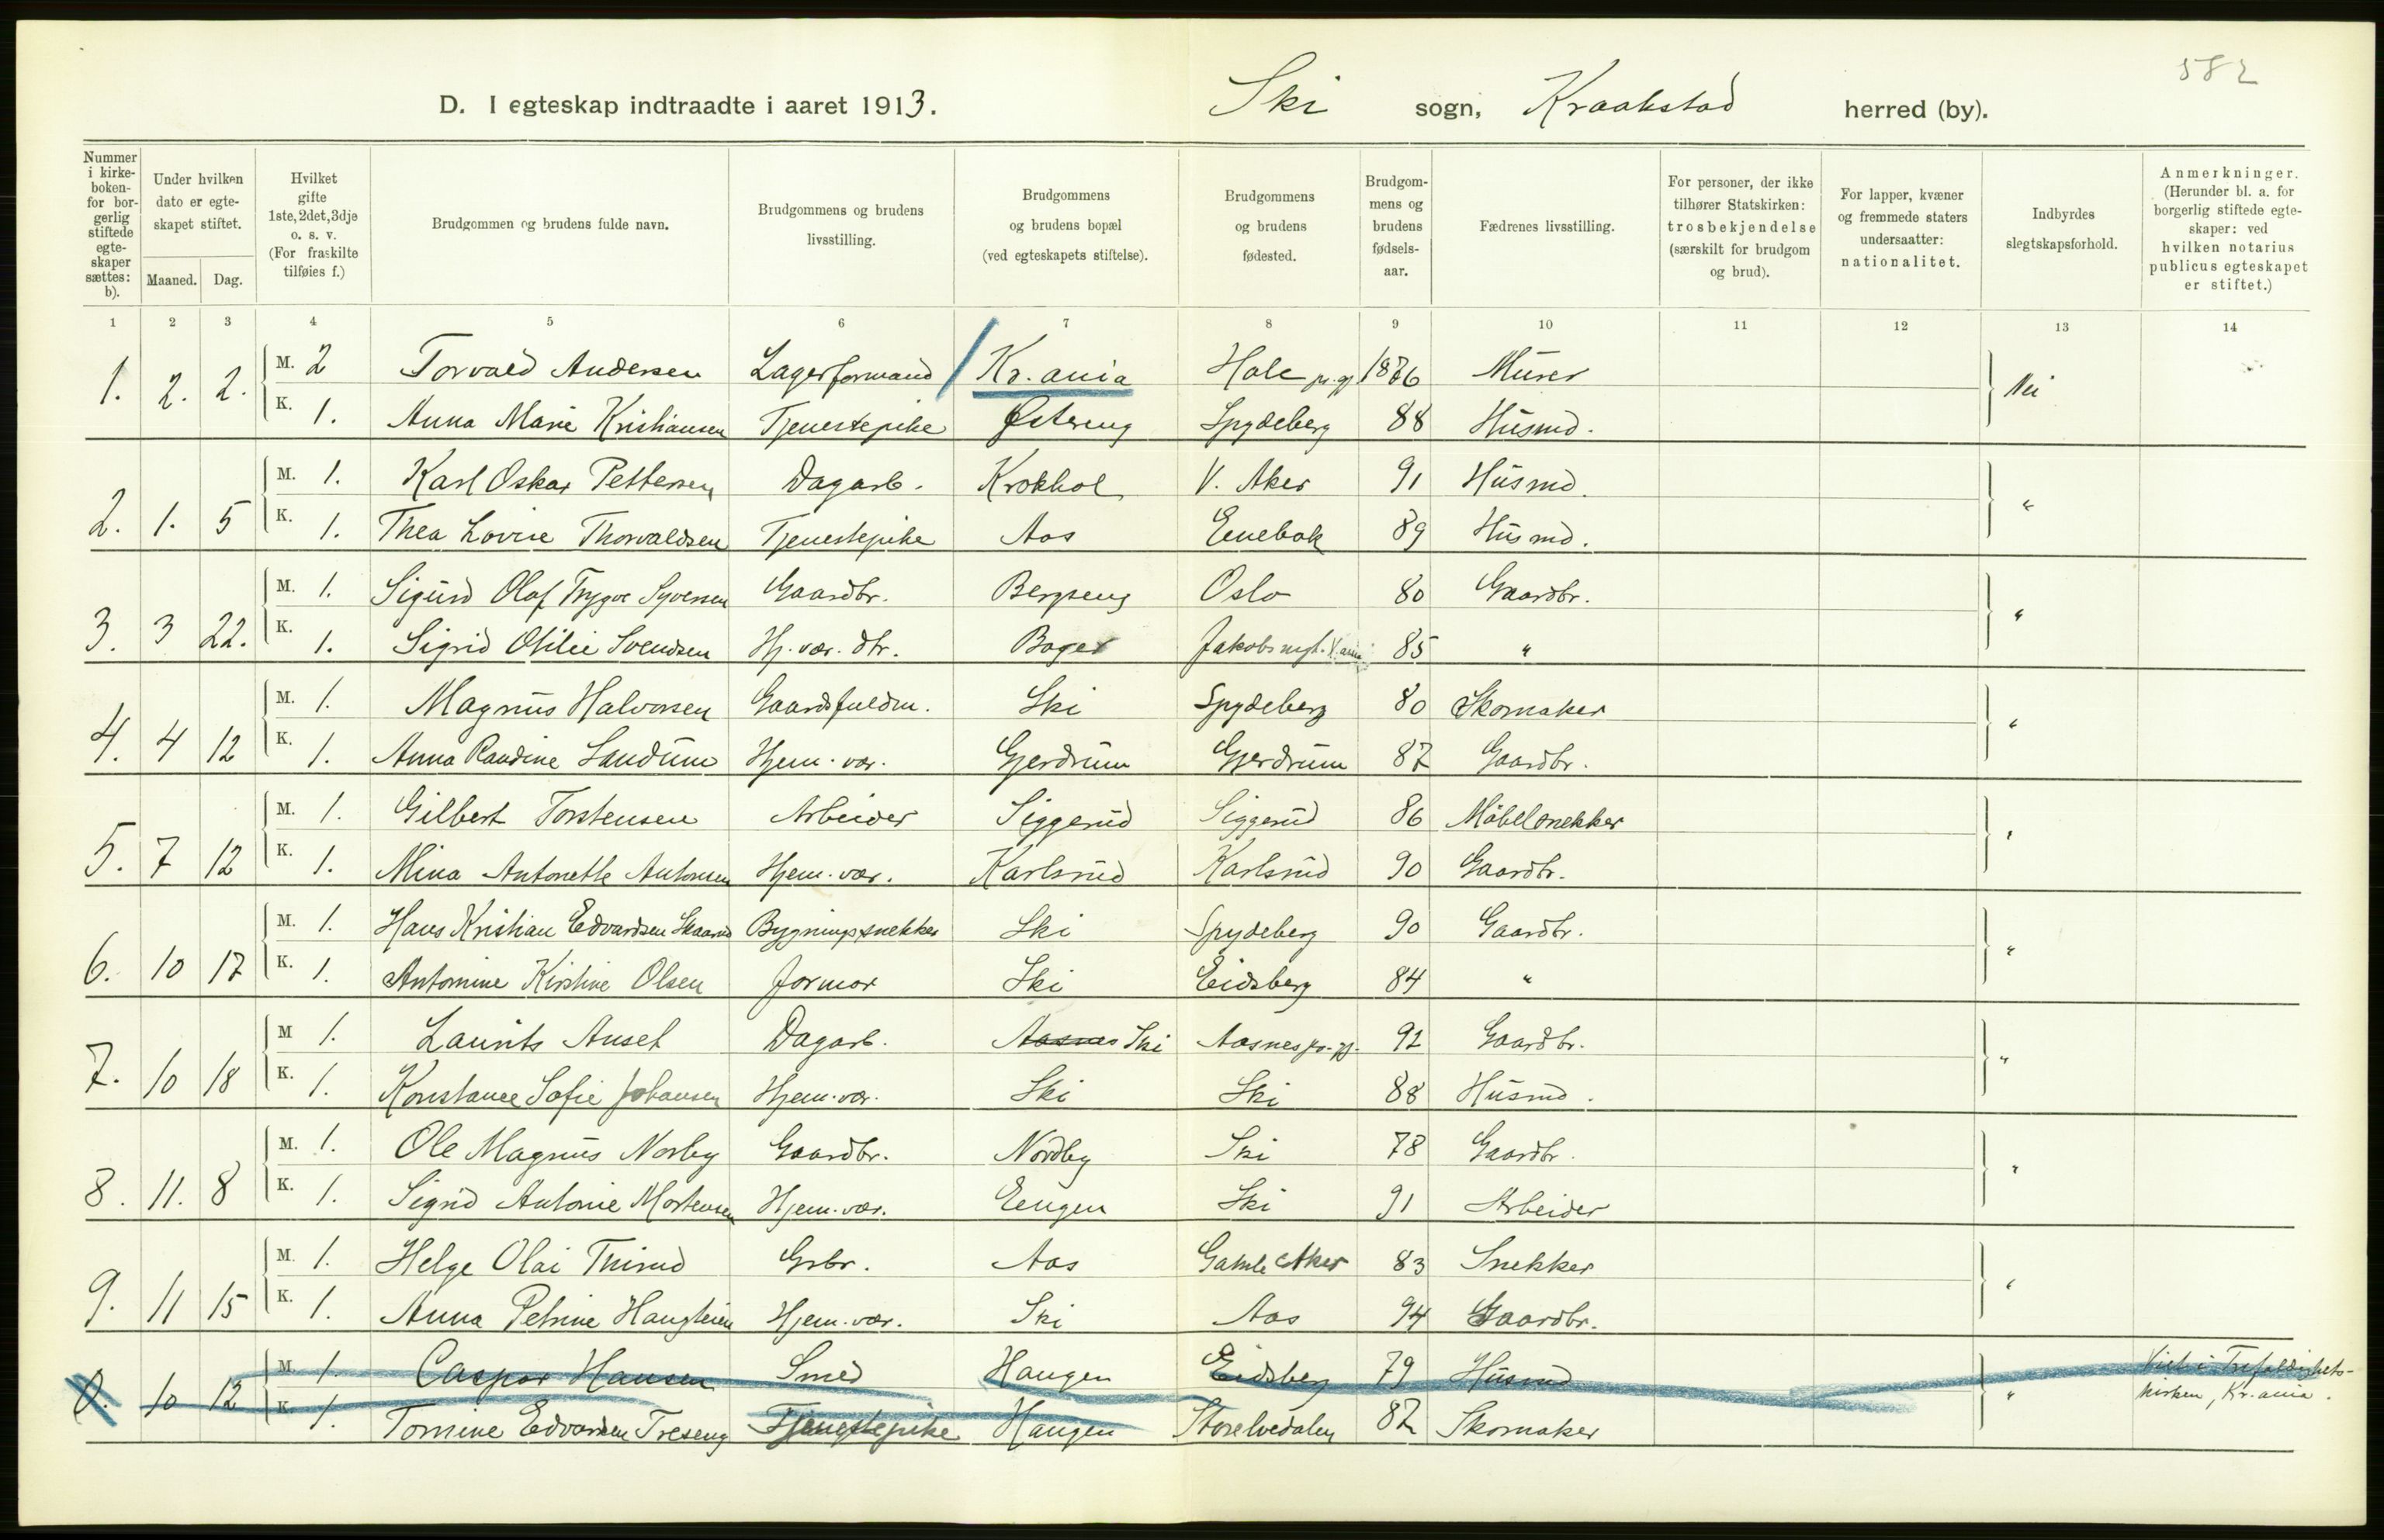 582
D. I egteskap indtraadte i aaret 1913. Ski sogn, Kraakstad herred (by).
Nummer i kirkeboken- for borgerlig stiftede egteskaper sættes: b).
Under hvilken dato er egteskapet stiftet.
Maaned. Dag.
Hvilket gifte 1ste, 2det, 3dje o. s. v. (For fraskilte tilføies f.)
Brudgommen og brudens fulde navn.
Brudgommens og brudens livsstilling.
Brudgommens og brudens bopæl (ved egteskapets stiftelse).
Brudgommens og brudens fødested.
Brudgommens og brudens fødselsaar.
Fædrenes livsstilling.
For personer, der ikke tilhører Statskirken: trosbekjendelse (særskilt for brudgom og brud).
For lapper, kvæner og fremmede staters undersaatter: nationalitet.
Indbyrdes slegtskapsforhold.
Anmerkninger. (Herunder bl. a. for borgerlig stiftede egteskaper: ved hvilken notarius publicus egteskapet er stiftet.)
1 2 3 4 5 6 7 8 9 10 11 12 13 14
1. 2. 2. M. 2 Torvald Andersen Lagerformand Kr.ania Hole pr.gj. 1876 Murer Nei
K. 1. Anna Marie Kristiansen Tjenestepike Østereng Spydeberg 88 Husmd.
2. 1. 5 M. 1. Karl Oskar Pettersen Dagarb. Krokhol V. Aker 91 Husmd. "
K. 1. Thea Lovise Thorvaldsen Tjenestepike Aas Enebak 89 Husmd.
3. 3 22. M. 1. Sigurd Olaf Trygve Syversen Gaardbr. Bergseng Oslo 80 Gaardbr. "
K. 1. Sigrid Otilie Svendsen Hj. vær. dtr. Bager Jakobs mgt. Kr.ania 85 "
4. 4 12 M. 1. Magnus Halvorsen Gaardsfuldm. Ski Spydeberg 80 Skomaker "
K. 1. Anna Randine Sandum Hjem. vær. Gjerdrum Gjerdrum 87 Gaardbr.
5. 7 12 M. 1. Gilbert Torstensen Arbeider Siggerud Siggerud 86 Møbelsnekker "
K. 1. Mina Antonette Antonsen Hjem. vær. Karlsrud Karlsrud 90 Gaardbr.
6. 10 17 M. 1. Hans Kristian Edvardsen Skaarud Bygningssnekker Ski Spydeberg 90 Gaardbr. "
K. 1. Antomine Kirstine Olsen Jormor Ski Eidsberg 84 "
7. 10 18 M 1. Laurits Anset Dagarb. Aasnes Ski Aasnes pr. gj. 92 Gaardbr. "
K. 1. Konstance Sofie Johansen Hjem. vær. Ski Ski 88 Husmd.
8. 11. 8 M. 1. Ole Magnus Norby Gaardbr. Nordby Ski 78 Gaardbr. "
K. 1. Sigrid Antonie Mortensen Hjem. vær. Eengen Ski 91 Arbeider
9. 11 15 M. 1. Helge Olai Thirud Grbr. Aas Gamle Aker 83 Snekker "
K. 1. Anna Petrine Haugteien Hjem. vær. Ski Aas 94 Gaardbr.
0. 10 12 M. 1. Caspar Hansen Smed Haugen Eidsberg 79 Husmd " Viet i Trefoldighets-
K. 1. Tomine Edvardsen Treseng Tjenestepike Haugen Storelvedalen 87 Skomaker kirken, Kr.ania.